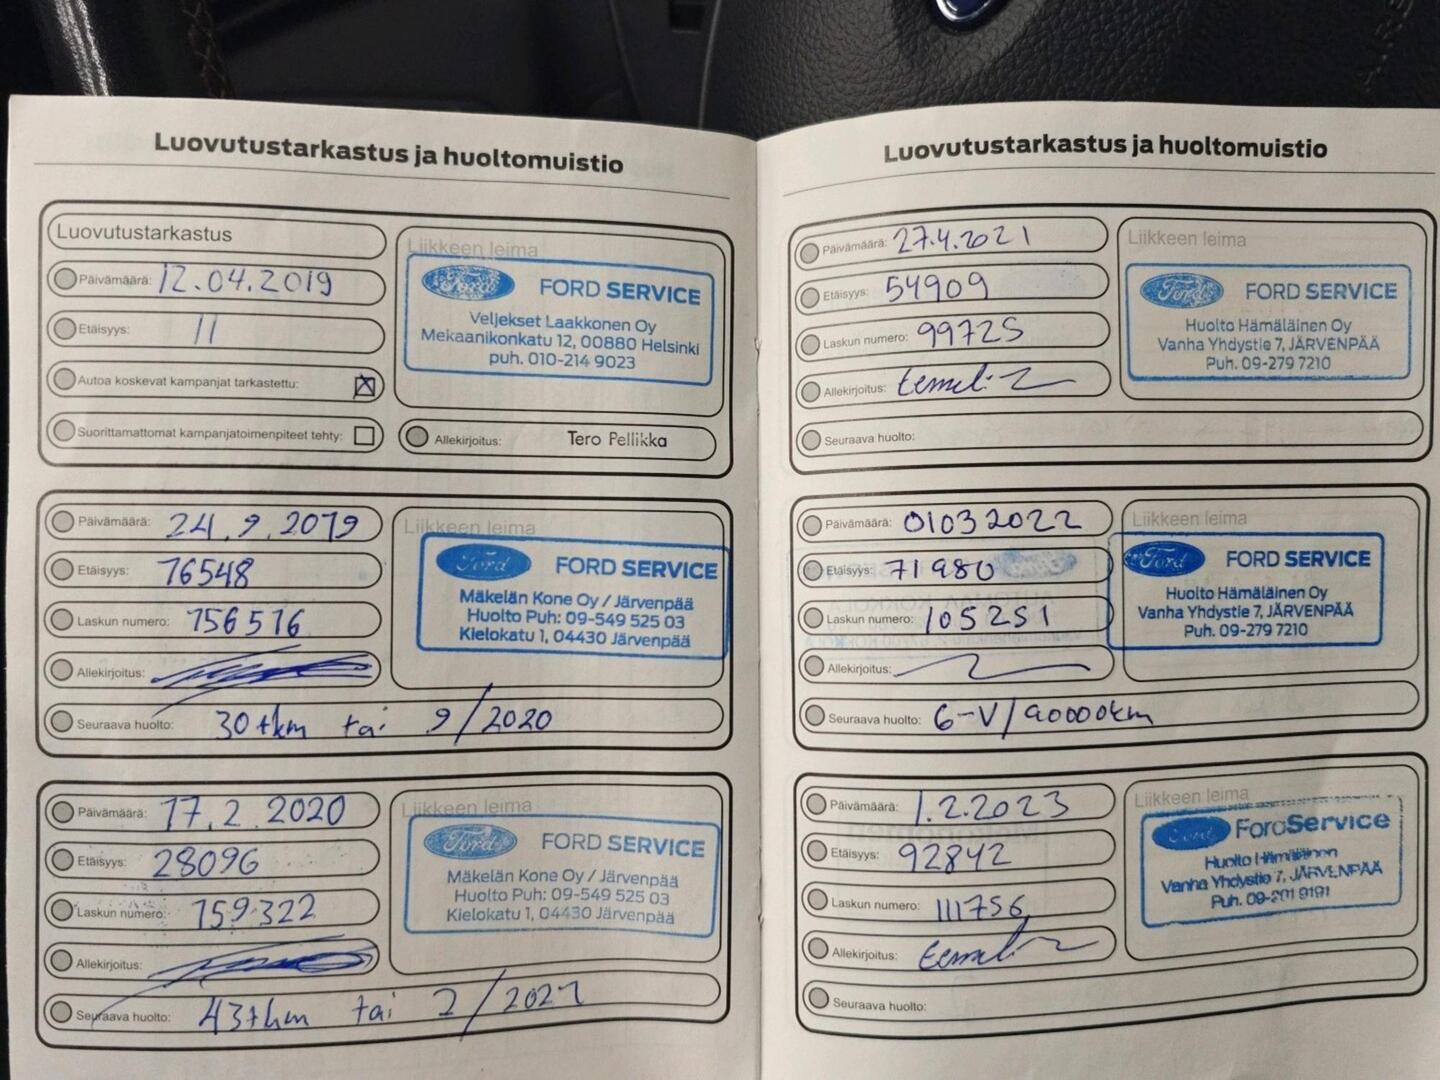 Luovutustarkastus ja huoltomuistio
Luovutustarkastus
Päivämäärä: 12.04.2019
Etäisyys: 11
Autoa koskevat kampanjat tarkastettu:
Suorittamattomat kampanjatoimenpiteet tehty:
Liikkeen leima
Ford
FORD SERVICE
Veljekset Laakkonen Oy
Mekaanikonkatu 12, 00880 Helsinki
puh. 010-214 9023
Allekirjoitus: Tero Pellikka
Päivämäärä: 24.9.2019
Etäisyys: 16548
Laskun numero: 156516
Allekirjoitus:
Seuraava huolto: 30tkm tai 9/2020
Liikkeen leima
Ford
FORD SERVICE
Mäkelän Kone Oy / Järvenpää
Huolto Puh: 09-549 525 03
Kielokatu 1, 04430 Järvenpää
Päivämäärä: 17.2.2020
Etäisyys: 28096
Laskun numero: 159322
Allekirjoitus:
Seuraava huolto: 43tkm tai 2/2021
Liikkeen leima
Ford
FORD SERVICE
Mäkelän Kone Oy / Järvenpää
Huolto Puh: 09-549 525 03
Kielokatu 1, 04430 Järvenpää
Luovutustarkastus ja huoltomuistio
Päivämäärä: 27.4.2021
Etäisyys: 54909
Laskun numero: 99725
Allekirjoitus:
Seuraava huolto:
Liikkeen leima
Ford
FORD SERVICE
Huolto Hämäläinen Oy
Vanha Yhdystie 7, JÄRVENPÄÄ
Puh. 09-279 7210
Päivämäärä: 01032022
Etäisyys: 71980
Laskun numero: 105251
Allekirjoitus:
Seuraava huolto: 6-V/90000km
Liikkeen leima
Ford
FORD SERVICE
Huolto Hämäläinen Oy
Vanha Yhdystie 7, JÄRVENPÄÄ
Puh. 09-279 7210
Päivämäärä: 1.2.2023
Etäisyys: 92842
Laskun numero: 111756
Allekirjoitus:
Seuraava huolto:
Liikkeen leima
Ford
FordService
Huolto Hämäläinen
Vanha Yhdystie 7, JÄRVENPÄÄ
Puh. 09-291 9191